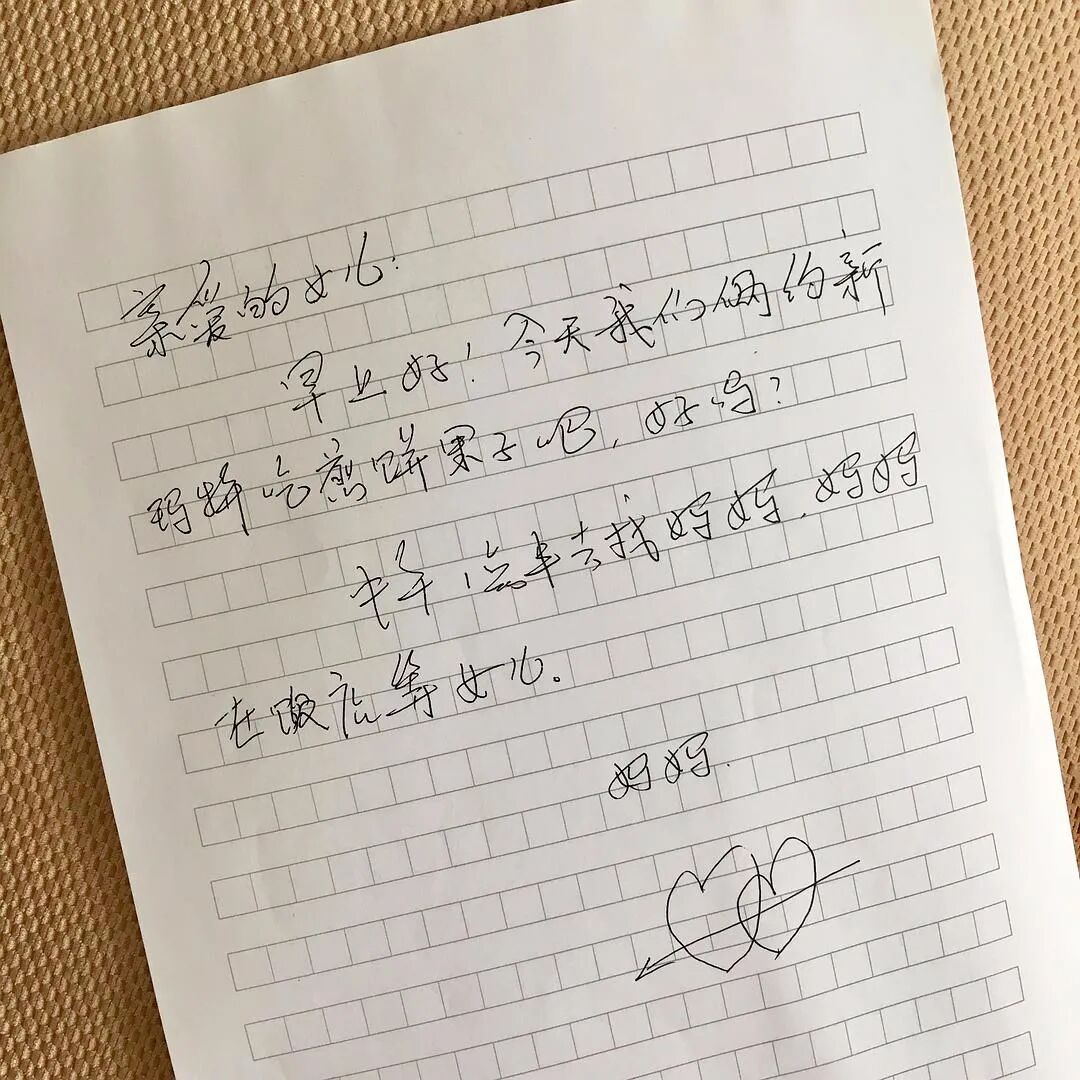 亲爱的女儿:
早上好!今天我们俩约新
玛特吃煎饼果子吧,好吗?
中午1点半去找妈妈,妈妈
在饭店等女儿。
妈妈.